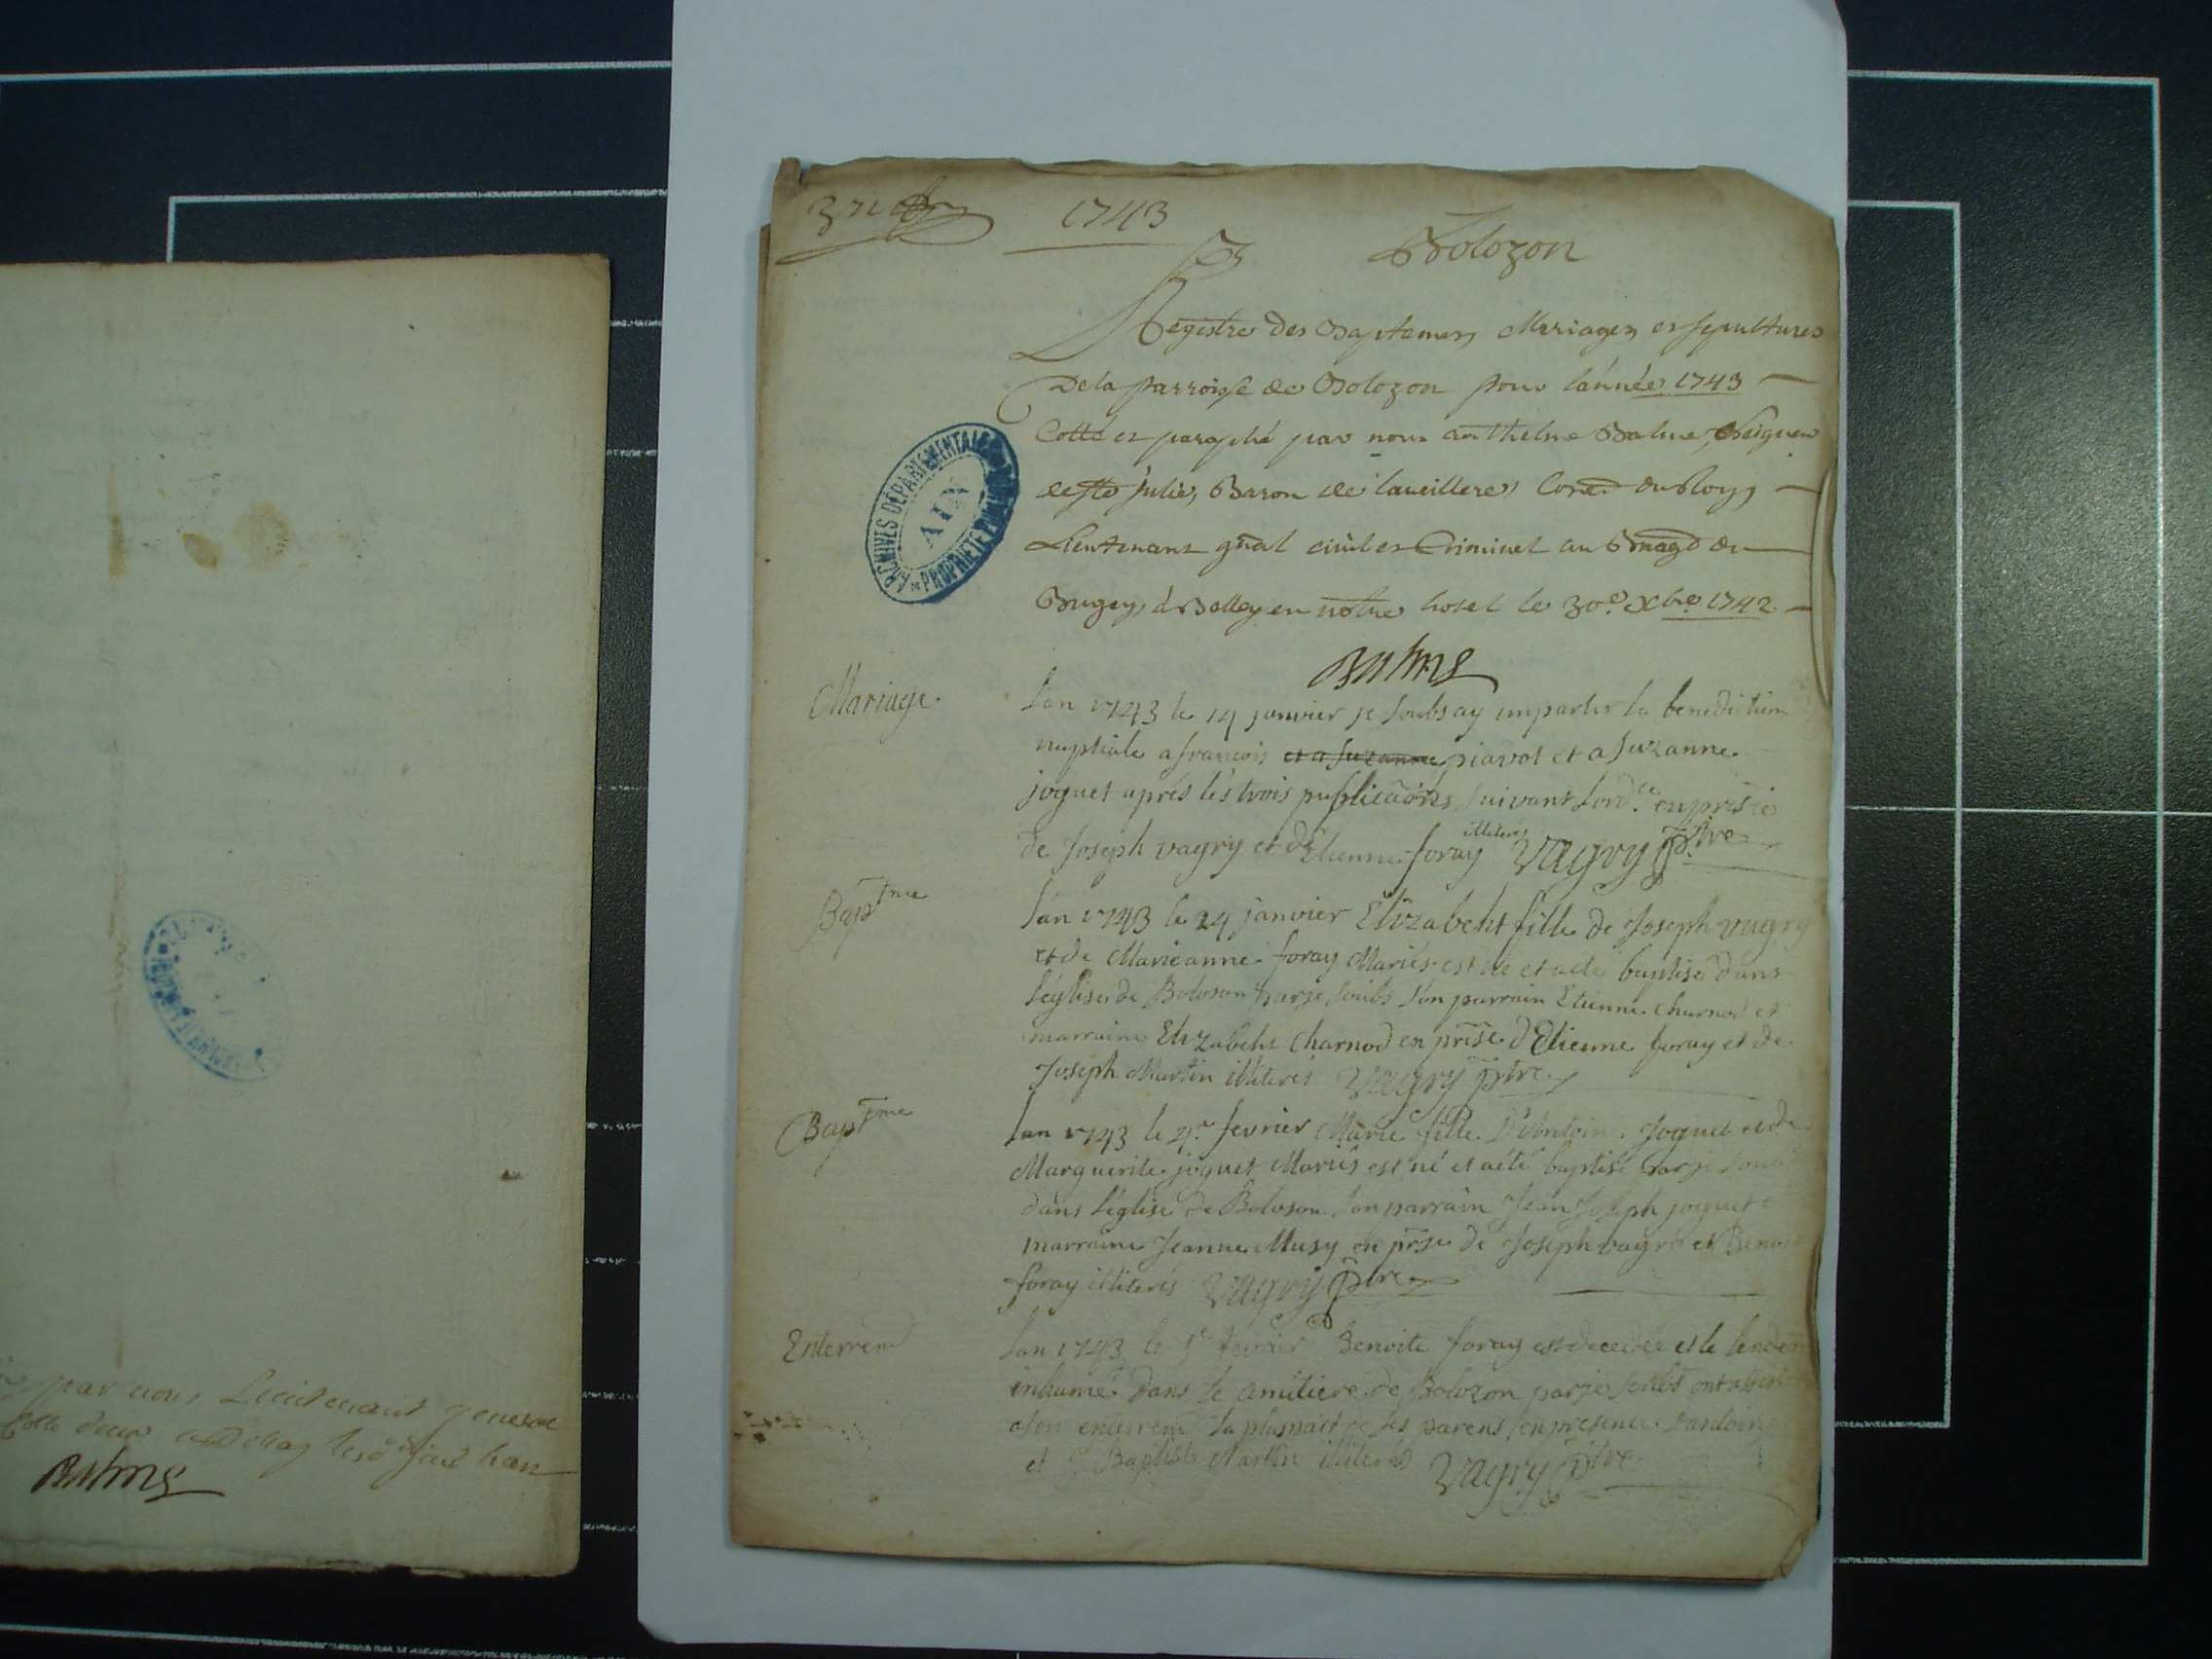 1743
Bolozon
Registre des Baptemes, Mariages, et sepultures
De la parroisse de Bolozon pour l'année 1743
Cotté et paraphé par nous anthelme Balme, Seigneur
de Ste Julie, Baron de Laveillere, Coner. du Roy,
Lieutenant gñal civil et Criminel au Bailliage de
Bugey, à Belley en notre hotel le 30e. Xbre 1742
Balme
ARCHIVES DEPARTEMENTALES
AIN
PROPRIETE PUBLIQUE
Mariage.
Lan 1743 le 14 janvier je soubs ay imparti la benediction
nuptiale a francois et a suzanne piavot et a suzanne
joguet aprés lés trois publicaõns suivant Lord.ce en prìsce
de Joseph vagry et d'Etienne foray illiterés Vagry ptre
Baptme
Lan 1743 le 24 janvier Elizabeht fille de Joseph vagry
et de Marieanne foray Mariés est né et a eté baptisé dans
léglise de Boloson par je soubs son parrain Etienne charnod et
marraine Elizabeht Charnod en prìse d'Etienne foray et de
Joseph Martin illiterés Vagry ptre
Baptme
Lan 1743 le 4e fevrier Marie fille D'antoine Joguet et de
Marguerite joguet Mariés est né et a été baptisé par je soubs
dans l'église de Boloson son parrain Jean Joseph joguet
marraine Jeanne Musy en prìse de Joseph vagry et Benoit
foray illiterés Vagry ptre
Enterrem
Lan 1743 le 5e fevrier Benoite foray est decedée et le lendem
inhumé dans le cimitiere de Bolozon par je soubs ont assisté
a son enterrem la pluspart de ses parens en presence d'antoine
et Baptiste Martin illiterés Vagry ptre
par nous Lieutenant general
Balme